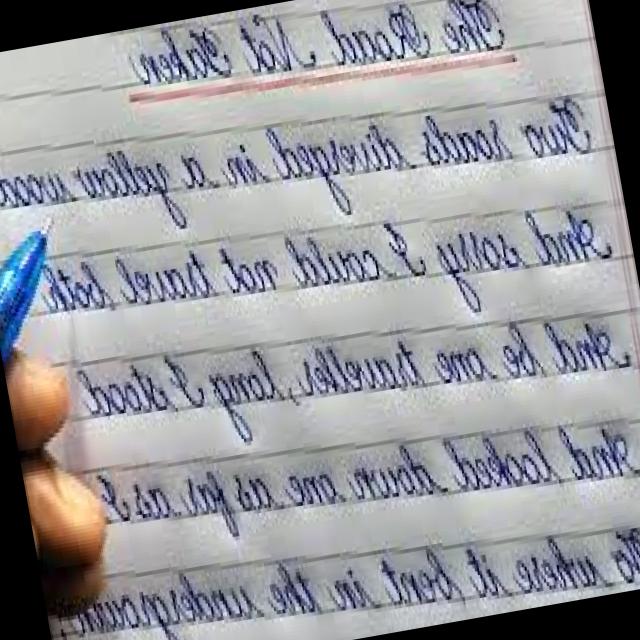 The Road Not Taken
Two roads diverged in a yellow wood
And sorry I could not travel both
And be one traveller, long I stood
And looked down one as far as I
To where it bent in the undergrowth